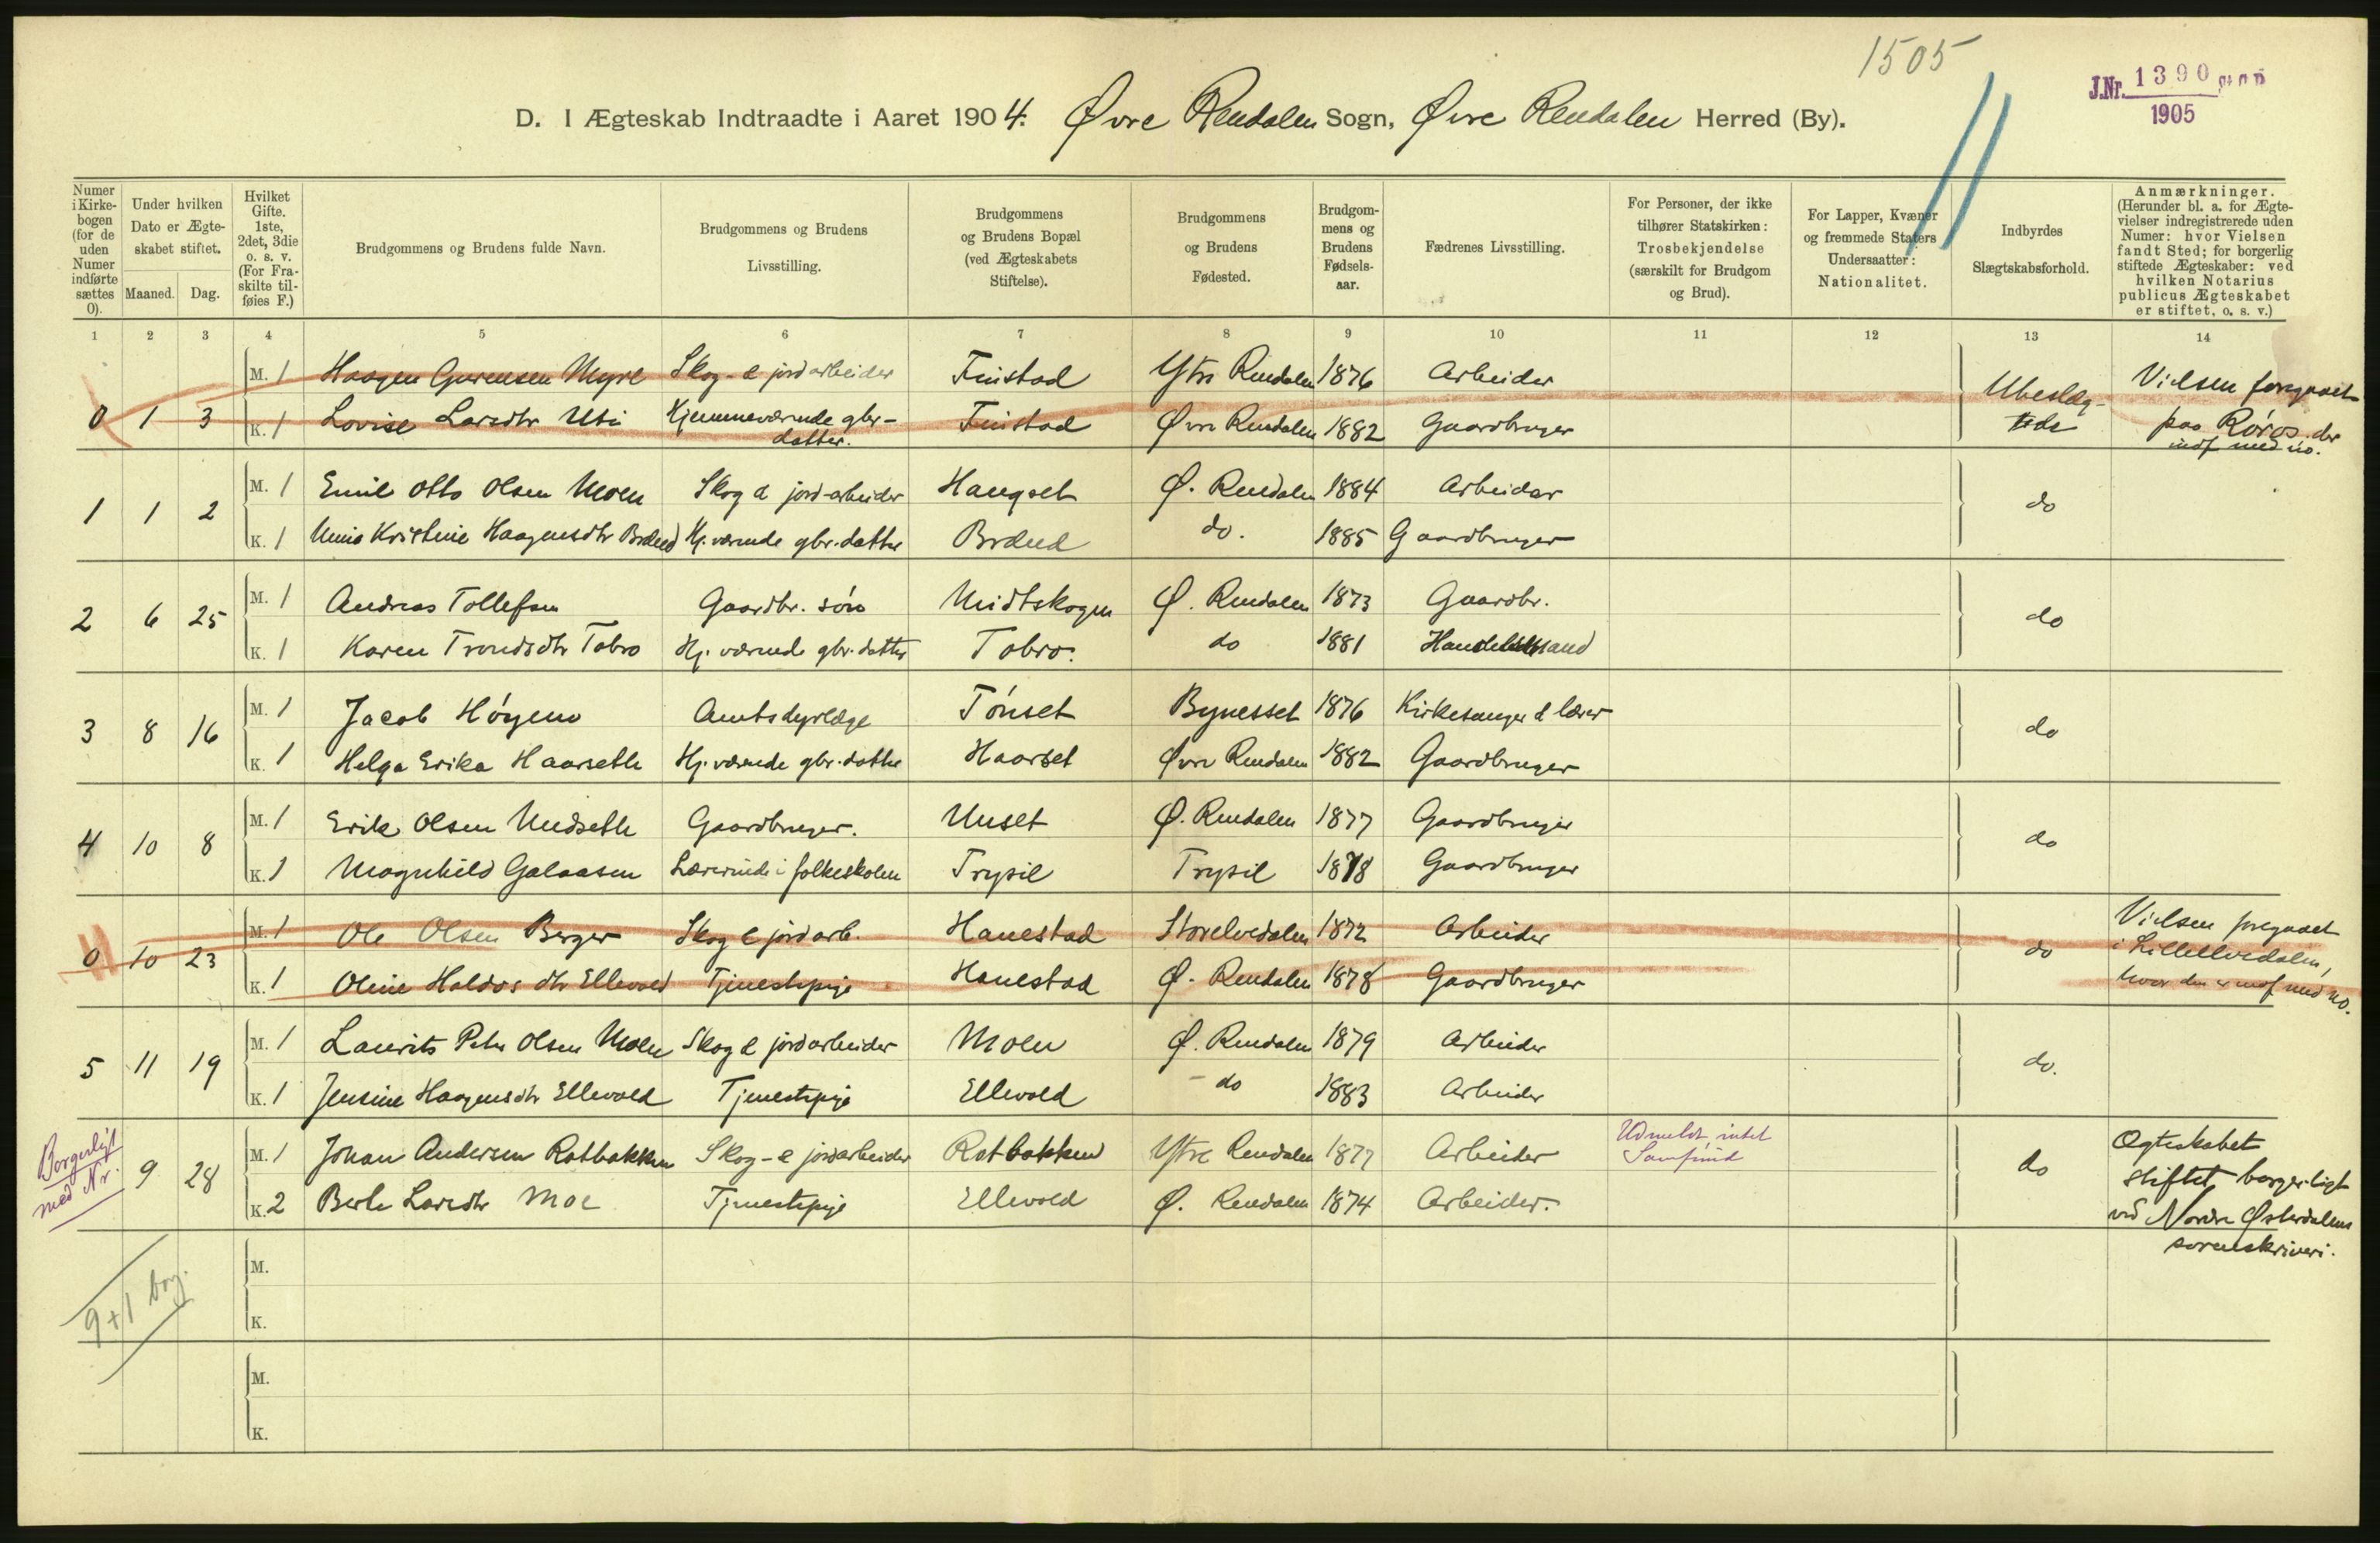 1505
J.Nr. 1390
1905
D. I Ægteskab Indtraadte i Aaret 1904. Øvre Rendalen Sogn, Øvre Rendalen Herred (By).
Numer i Kirkebogen (for de uden Numer indførte sættes 0).
Under hvilken Dato er Ægteskabet stiftet.
Maaned. Dag.
Hvilket Gifte. 1ste, 2det, 3die o. s. v. (For Fraskilte tilføies F.)
Brudgommens og Brudens fulde Navn.
Brudgommens og Brudens Livsstilling.
Brudgommens og Brudens Bopæl (ved Ægteskabets Stiftelse).
Brudgommens og Brudens Fødested.
Brudgommens og Brudens Fødselsaar.
Fædrenes Livsstilling.
For Personer, der ikke tilhører Statskirken: Trosbekjendelse (særskilt for Brudgom og Brud).
For Lapper, Kvæner og fremmede Staters Undersaatter: Nationalitet.
Indbyrdes Slægtskabsforhold.
Anmærkninger. (Herunder bl. a. for Ægtevielser indregistrerede uden Numer: hvor Vielsen fandt Sted; for borgerlig stiftede Ægteskaber: ved hvilken Notarius publicus Ægteskabet er stiftet, o. s. v.)
1 2 3 4 5 6 7 8 9 10 11 12 13 14
M. 1 Haagen Gurensen Myre Skog- & jordarbeider Finstad Ytre Rendalen 1876 Arbeider Ubeslæg- Vielsen foregaaet
0 1 3 K. 1 Lovise Larsdtr Uti Hjemmeværende gbr- Finstad Øvre Rendalen 1882 Gaardbruger tede paa Røros, der
datter. indf med no.
M. 1 Emil Otto Olsen Moen Skog & jord-arbeider Haugset Ø. Rendalen 1884 Arbeider
1 1 2 do
K. 1 Kristine Haagensdtr Brænd Hj. værende gbr. datter Brænd do. 1885 Gaardbruger
M. 1 Andreas Tollefsen Gaardbr. søn Midtskogen Ø. Rendalen 1873 Gaardbr.
2 6 25 do
K. 1 Karen Trondsdtr Tobro Hj. værende gbr. datter Tobro. do 1881 Handelsmand
M. 1 Jacob Høyem Amtsdyrlæge Tønset Bynesset 1876 Kirkesanger & lærer
3 8 16 do
K. 1 Helga Erika Haarseth Hj. værende gbr. datter Haarset Øvre Rendalen 1882 Gaardbruger
M. 1 Erik Olsen Undseth Gaardbruger. Unset Ø. Rendalen 1877 Gaardbruger
4 10 8 do
K. 1 Magnhild Galaasen Lærerinde i folkeskolen Trysil Trysil 1878 Gaardbruger
M. 1 Ole Olsen Berger Skog & jordarb. Hanestad Storelvedalen 1872 Arbeider Vielsen foregaaet
0 10 23 do i Lilleelvedalen,
K. 1 Oline Haldos dtr Ellevold Tjenestepige Hanestad Ø. Rendalen 1878 Gaardbruger hvor den er indf med no.
M. 1 Laurits Peter Olsen Moen Skog & jordarbeider Moen Ø. Rendalen 1879 Arbeider
5 11 19 do.
K. 1 Jensine Haagensdtr Ellevold Tjenestepige Ellevold do 1883 Arbeider
Borgerligt
med Nr.
M. 1 Johan Andersen Rotbakken Skog- & jordarbeider Rotbakken Ytre Rendalen 1877 Arbeider Udmeldt, intet Samfund Ægteskabet
9 28 do stiftet borgerligt
K. 2 Berte Larsdtr Moe Tjenestepige Ellevold Ø. Rendalen 1874 Arbeider. ved Nordre Østerdalens
sorenskriveri.
M.
9+1 borg.
K.
M.
K.